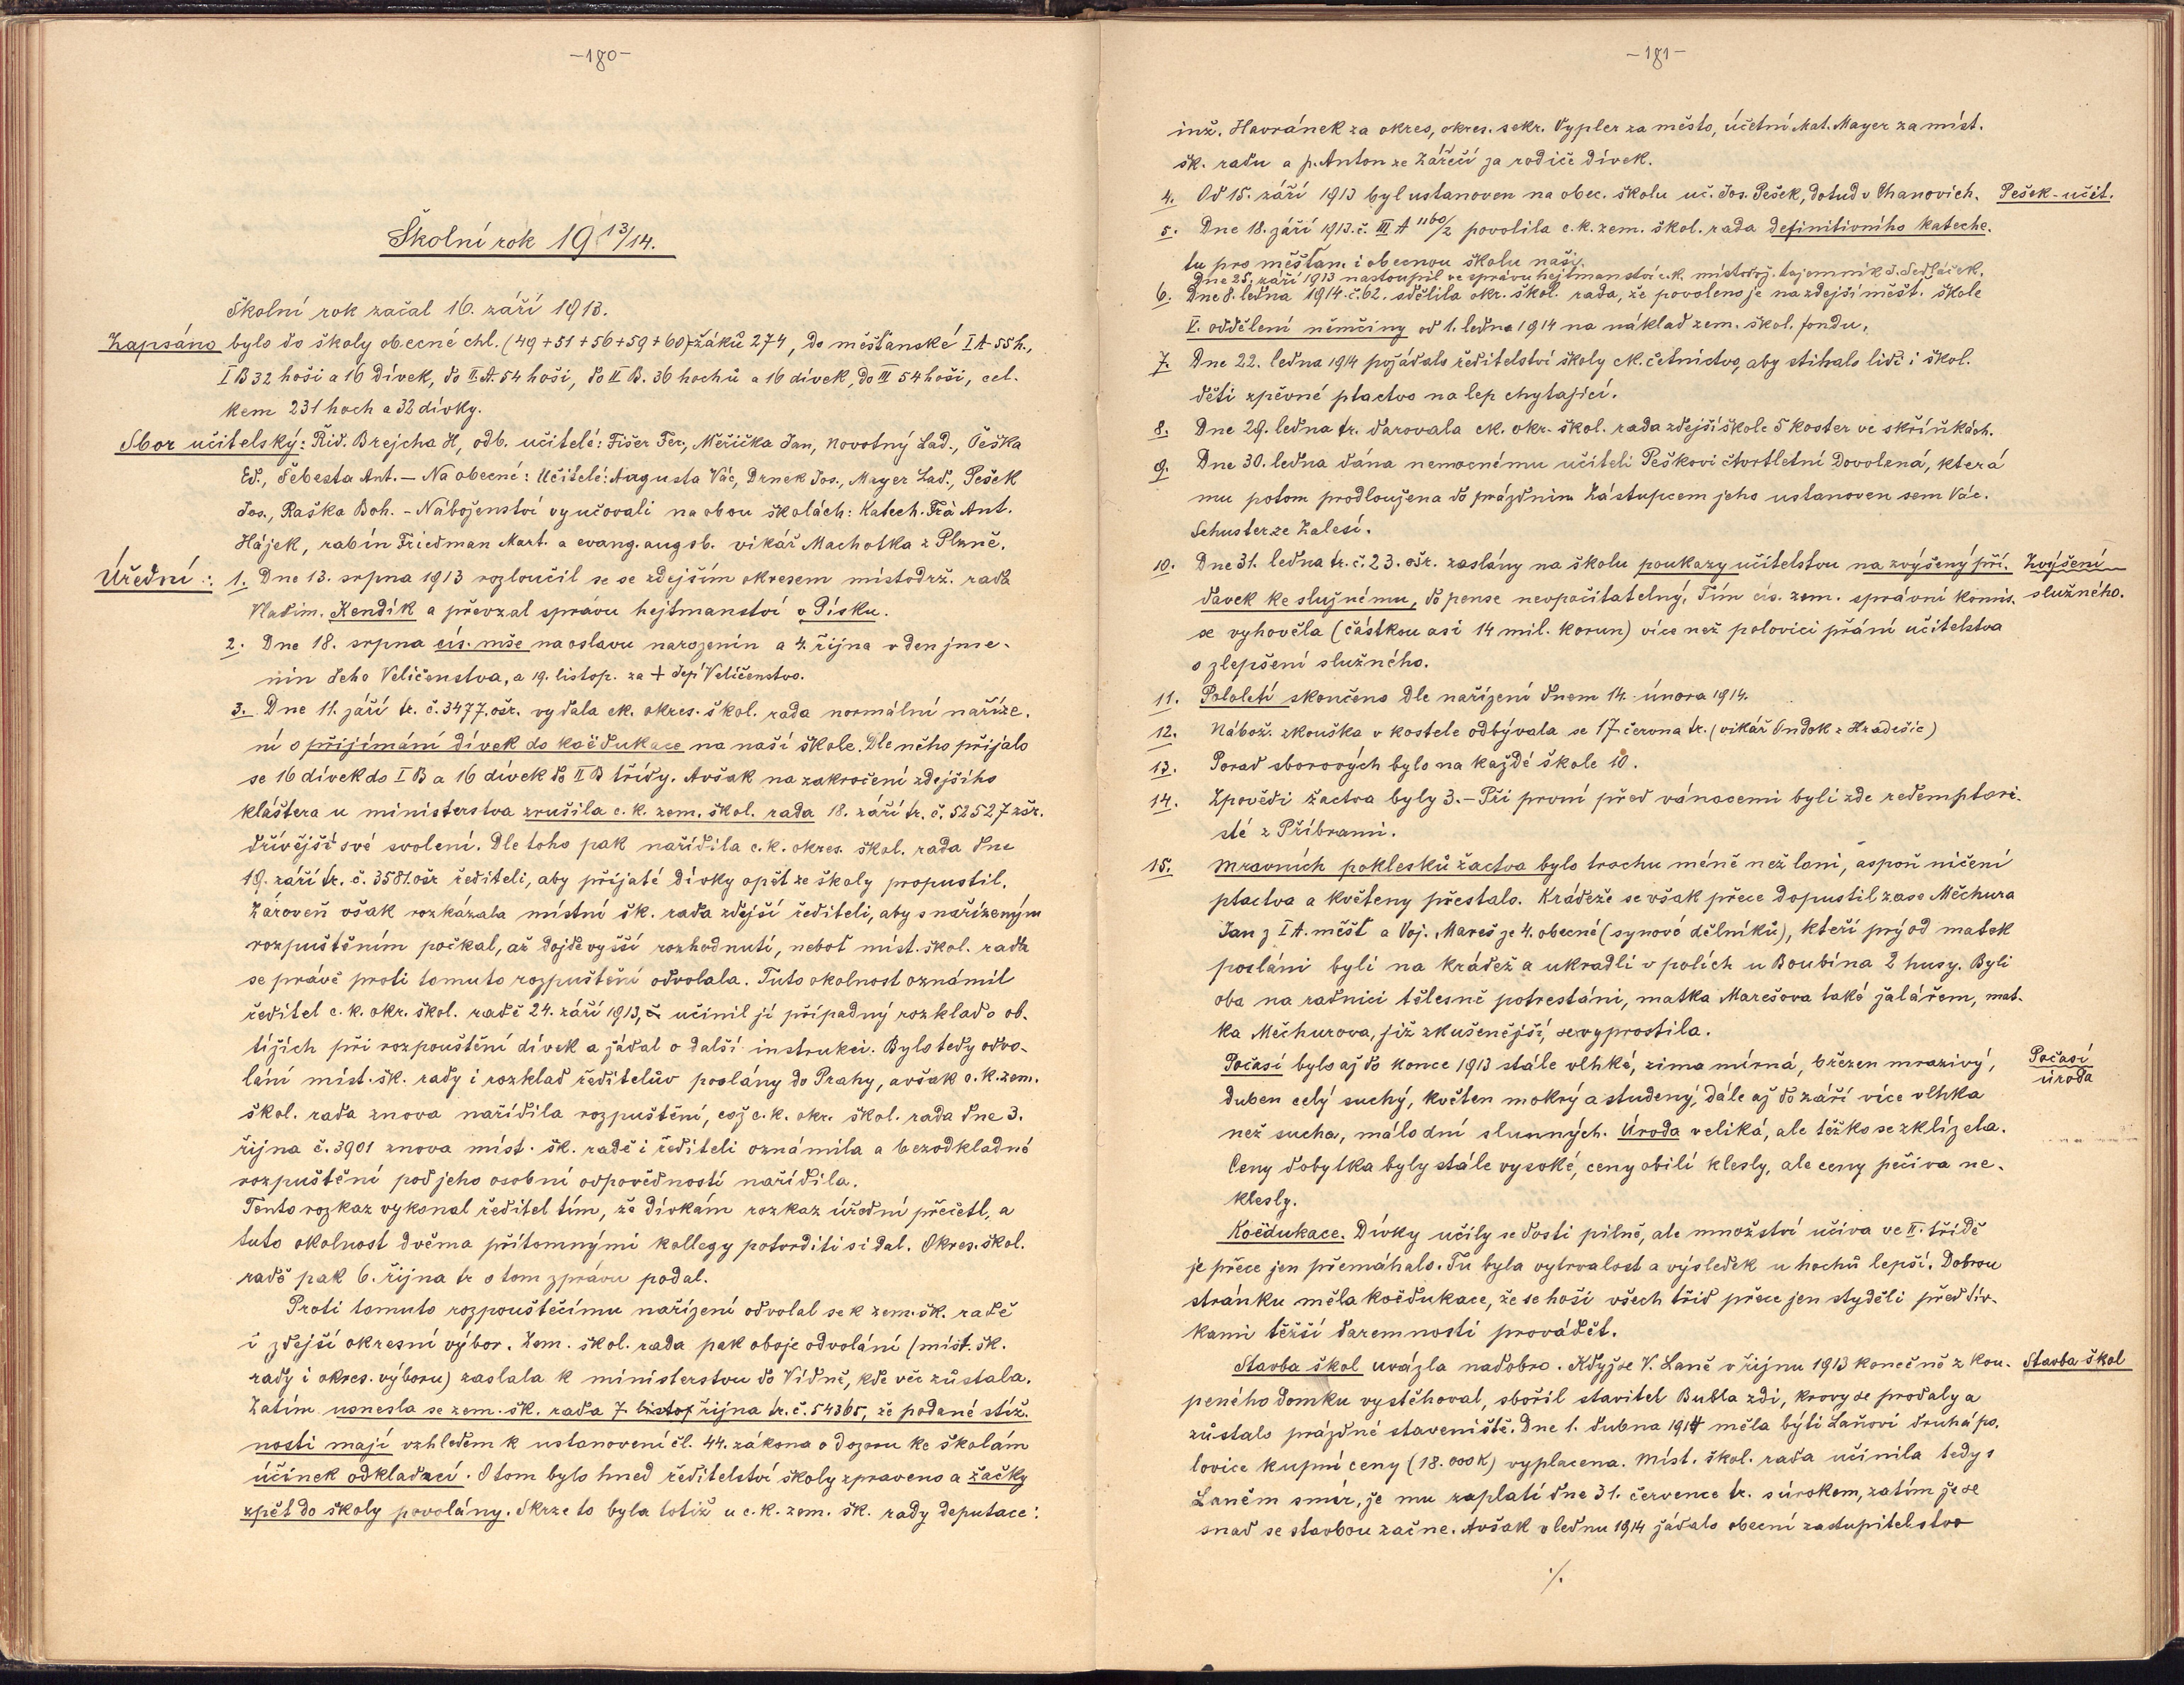 -180-
Školní rok 19 13/14.
Školní rok začal 16. září 1913.
Zapsáno bylo do školy obecné chl. (49+51+56+59+60) žáků 274, do měšťanské I A 55 h.,
I B 32 hoši a 16 dívek, do II A. 54 hoši, do II B. 36 hochů a 16 dívek, do III 54 hoši, cel-
kem 231 hoch a 32 dívky.
Sbor učitelský: Řid. Brejcha H, odb. učitelé: Fišer Fer., Měřička Jan, Novotný Lad., Češka
Ed., Šebesta Ant. — Na obecné: Učitelé: Augusta Vác, Drnek Jos., Mayer Lad., Pešek
Jos., Raška Boh. - Náboženství vyučovali na obou školách: Katech. Frà Ant.
Hájek, rabín Friedman Mart. a evang. augsb. vikář Machotka z Plzně.
Úřední: 1. Dne 13. srpna 1913 rozloučil se se zdejším okresem místodrž. rada
Vladim. Kendík a převzal správu hejtmanství v Písku.
2. Dne 18. srpna cís. mše na oslavu narozenin a 4. října v den jme-
nin Jeho Veličenstva, a 19. listop. za + Její Veličenstvo.
3. Dne 11. září tr. č. 3477. ošr. vydala ck. okres. škol. rada normální naříze-
ní o přijímání dívek do koëdukace na naší škole. Dle něho přijalo
se 16 dívek do I B a 16 dívek do II B třídy. Avšak na zakročení zdejšího
kláštera u ministerstva zrušila c. k. zem. škol. rada 18. září tr. č. 52527 zšr.
dřívější své svolení. Dle toho pak nařídila c.k. okres. škol. rada dne
19. září tr. č. 3581. ošr řediteli, aby přijaté dívky opět ze školy propustil.
Zároveň však rozkázala místní šk. rada zdejší řediteli, aby s nařízeným
rozpuštěním počkal, až dojde vyšší rozhodnutí, neboť míst. škol. rada
se právě proti tomuto rozpuštění odvolala. Tuto okolnost oznámil
ředitel c. k. okr. škol. radě 24. září 1913, učinil jí případný rozklad o ob-
tížích při rozpouštění dívek a žádal o další instrukci. Bylo tedy odvo-
lání míst. šk. rady i rozklad ředitelův poslány do Prahy, avšak c. k. zem.
škol. rada znova nařídila rozpuštění, což c. k. okr. škol. rada dne 3.
října č. 3901 znova míst. šk. radě i řediteli oznámila a bezodkladné
rozpuštění pod jeho osobní odpovědností nařídila.
Tento rozkaz vykonal ředitel tím, že dívkám rozkaz úřední přečetl, a
tuto okolnost dvěma přítomnými kollegy potvrditi si dal. Okres. škol.
radě pak 6. října tr o tom zprávu podal.
Proti tomuto rozpouštěcímu nařízení odvolal se k zem. šk. radě
i zdejší okresní výbor. Zem. škol. rada pak oboje odvolání (míst. šk.
rady i okres. výboru) zaslala k ministerstvu do Vídně, kde věc zůstala.
Zatím usnesla se zem. šk. rada 7. listop října tr. č. 54365, že podané stíž-
nosti mají vzhledem k ustanovení čl. 44. zákona o dozoru ke školám
účinek odkladací. O tom bylo hned ředitelství školy zpraveno a žačky
zpět do školy povolány. Skrze to byla totiž u c. k. zem. šk. rady deputace:
-181-
inž. Havránek za okres, okres. sekr. Vypler za město, účetní Mat. Mayer za míst.
šk. radu a p. Anton ze Zářečí za rodiče dívek.
4. Od 15. září 1913 byl ustanoven na obec. školu uč. Jos. Pešek, dotud v Chanovich. Pešek - učit.
5. Dne 18. září 1913. č. III A 1160/2 povolila c. k. zem. škol. rada definitivního kateche-
tu pro měšťan. i obecnou školu naši.
Dne 25. září 1913 nastoupil ve správu hejtmanství c.k. místodrž. tajemník J. Sedláček.
6. Dne 8. ledna 1914. č. 62. sdělila okr. škol. rada, že povoleno je na zdejší měšť. škole
V. oddělení němčiny od 1. ledna 1914 na náklad zem. škol. fondu.
7. Dne 22. ledna 1914 požádalo ředitelství školy ck. četnictvo, aby stihalo lidi i škol.
děti zpěvné ptactvo na lep chytající.
8. Dne 29. ledna tr. darovala ck. okr. škol. rada zdejší škole 5 koster ve skříňkách.
9. Dne 30. ledna dána nemocnému učiteli Peškovi čtvrtletní dovolená, která
mu potom prodloužena do prázdnin. Zástupcem jeho ustanoven sem Vác.
Schuster ze Zalesí.
10. Dne 31. ledna tr. č. 23. ošr. zaslány na školu poukazy učitelstvu na zvýšený pří- Zvýšení
davek ke služnému, do pense nevpočitatelný. Tím cís. zem. správní komis. služného.
se vyhověla (částkou asi 14 mil. korun) více než polovici přání učitelstva
o zlepšení služného.
11. Pololetí skončeno dle nařízení dnem 14. února 1914.
12. Nábož. zkouška v kostele odbývala se 17. června tr. (vikář Ondok z Hradešic)
13. Porad sborových bylo na každé škole 10.
14. Zpovědi žactva byly 3. - Při první před vánocemi byli zde redemptori-
sté z Příbrami.
15. Mravních poklesků žactva bylo trochu méně než loni, aspoň ničení
ptactva a květeny přestalo. Krádeže se však přece dopustil zase Měchura
Jan z I A. měšť a Voj. Mareš ze 4. obecné (synové dělníků), kteří prý od matek
posláni byli na krádež a ukradli v polích u Boubína 2 husy. Byli
oba na radnici tělesně potrestáni, matka Marešova také žalářem, mat-
ka Měchurova, již zkušenější, se vyprostila.
Počasí bylo až do konce 1913 stále vlhké, zima mírná, březen mrazivý, Počasí
duben celý suchý, květen mokrý a studený, dále až do září více vlhka úroda
než sucha, málo dní slunných. Úroda veliká, ale těžko se zklízela.
Ceny dobytka byly stále vysoké, ceny obilí klesly, ale ceny pečiva ne-
klesly.
Koëdukace. Dívky učily se dosti pilně, ale množství učiva ve II. třídě
je přece jen přemáhalo. Tu byla vytrvalost a výsledek u hochů lepší. Dobrou
stránku měla koëdukace, že se hoši všech tříd přece jen styděli před dív-
kami těžší daremnosti provádět.
Stavba škol uvázla nadobro. Když se V. Laně v říjnu 1913 konečně z kou- Stavba škol
peného domku vystěhoval, sbořil stavitel Bubla zdi, krovy se prodaly a
zůstalo prázdné staveniště. Dne 1. dubna 1914 měla býti Laňovi druhá po-
lovice kupní ceny (18.000 K) vyplacena. Míst. škol. rada učinila tedy s
Laněm smír, že mu zaplatí dne 31. července tr. s úrokem, zatím že se
snad se stavbou začne. Avšak v lednu 1914 žádalo obecní zastupitelstvo
./.